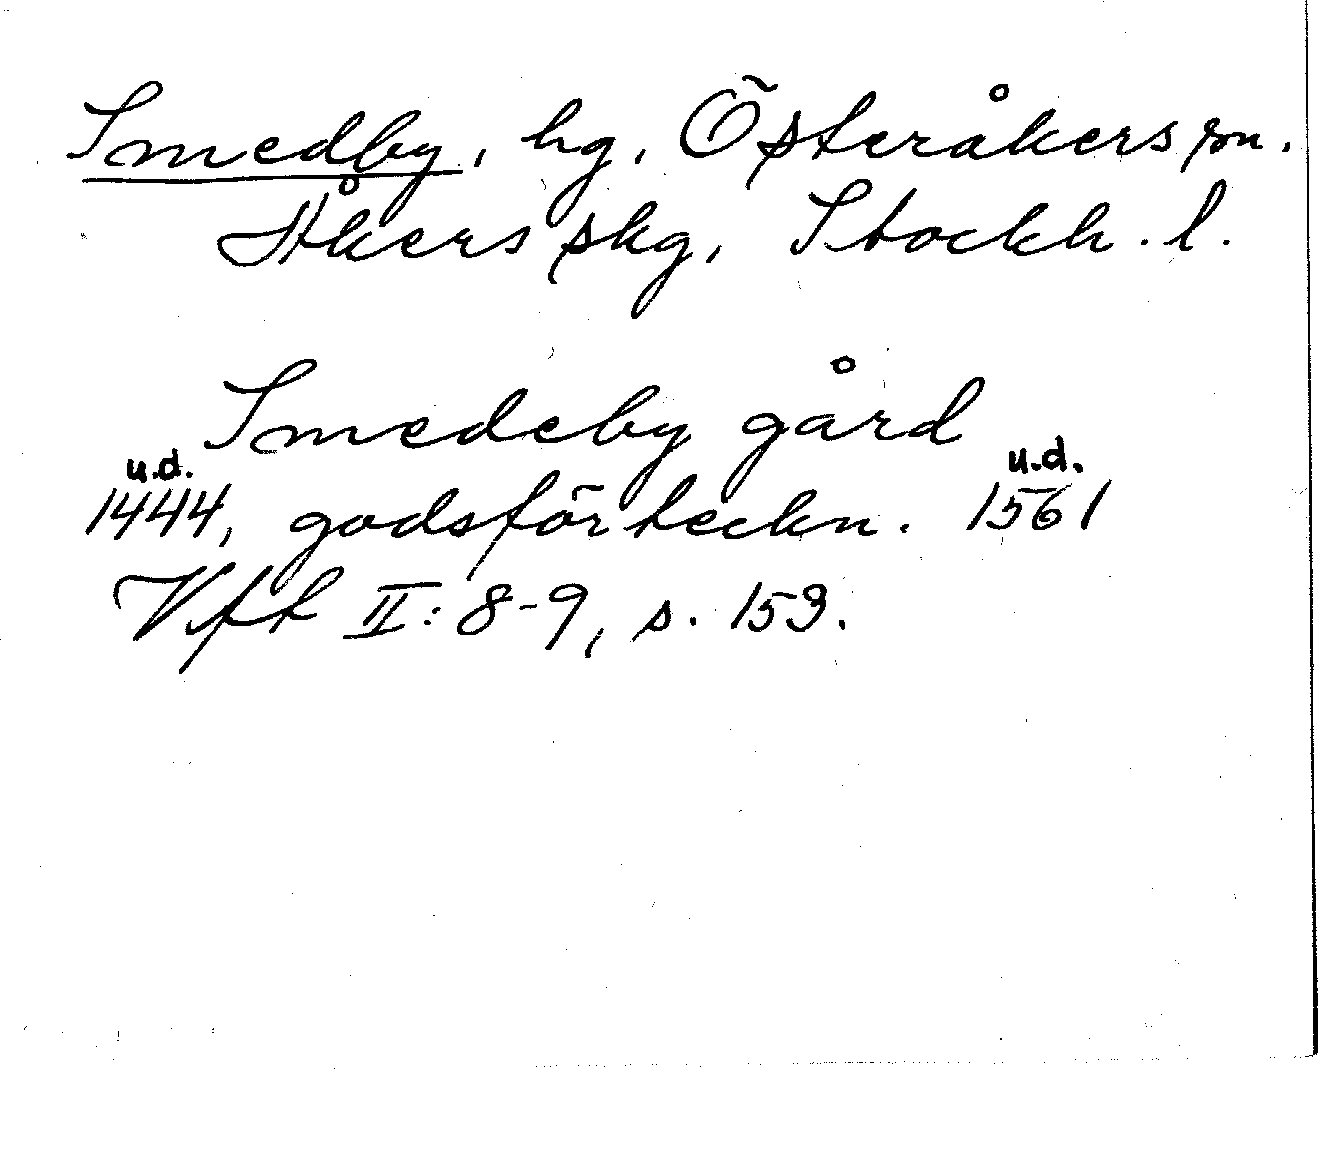 Smedby, hg, Österåkers sn.
Åkers skg, Stockh. l.
Smedeby gård
u.d. u.d.
1444, godsförteckn. 1561
Vft II: 8-9, s. 153.